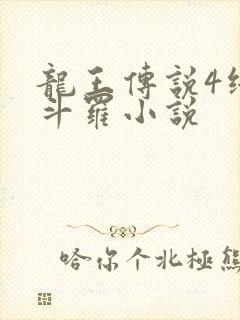 龍王傳說4終
斗羅小說
哈你个北極熊